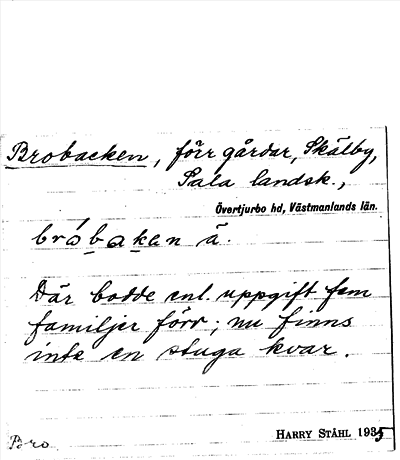 Brobacken, förr gårdar, Skälby,
Sala landsk.,
Övertjurbo hd, Västmanlands län.
bróbakan ä.
Där bodde enl. uppgift fem
familjer förr; nu finns
inte en stuga kvar.
Harry Ståhl 1935
Bro